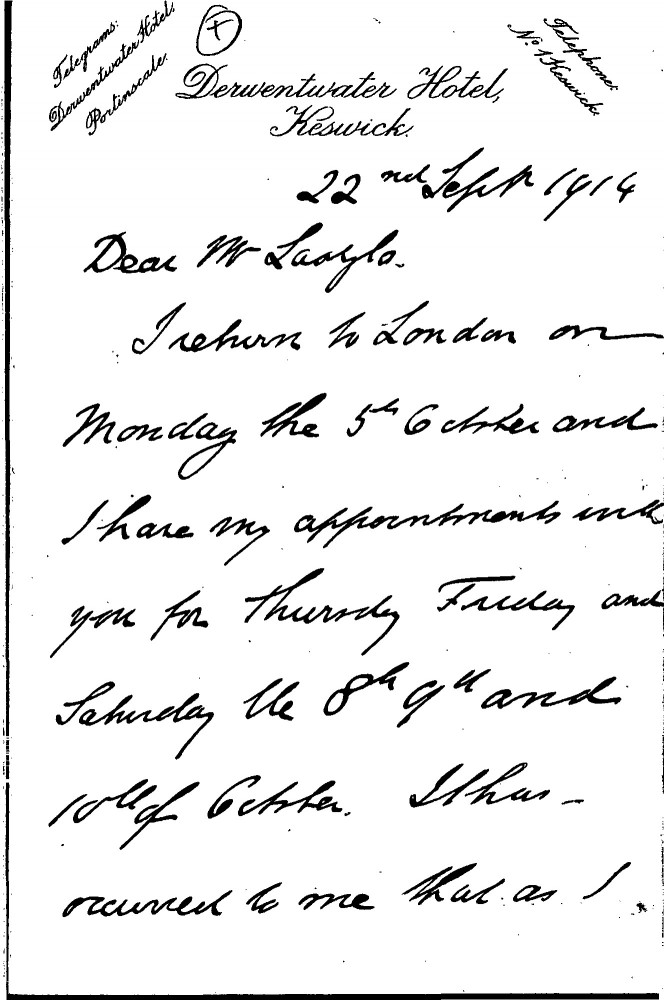 Telegrams:
Derwentwater Hotel,
Portinscale.
+
Telephone:
No. 1 Keswick.
Derwentwater Hotel,
Keswick.
22nd Sept 1914
Dear Mr
I return to London on
Monday the 5th October and
I have my appointments with
you for Thursday Friday and
Saturday the 8th 9th and
10th of October. It has -
occurred to me that as I